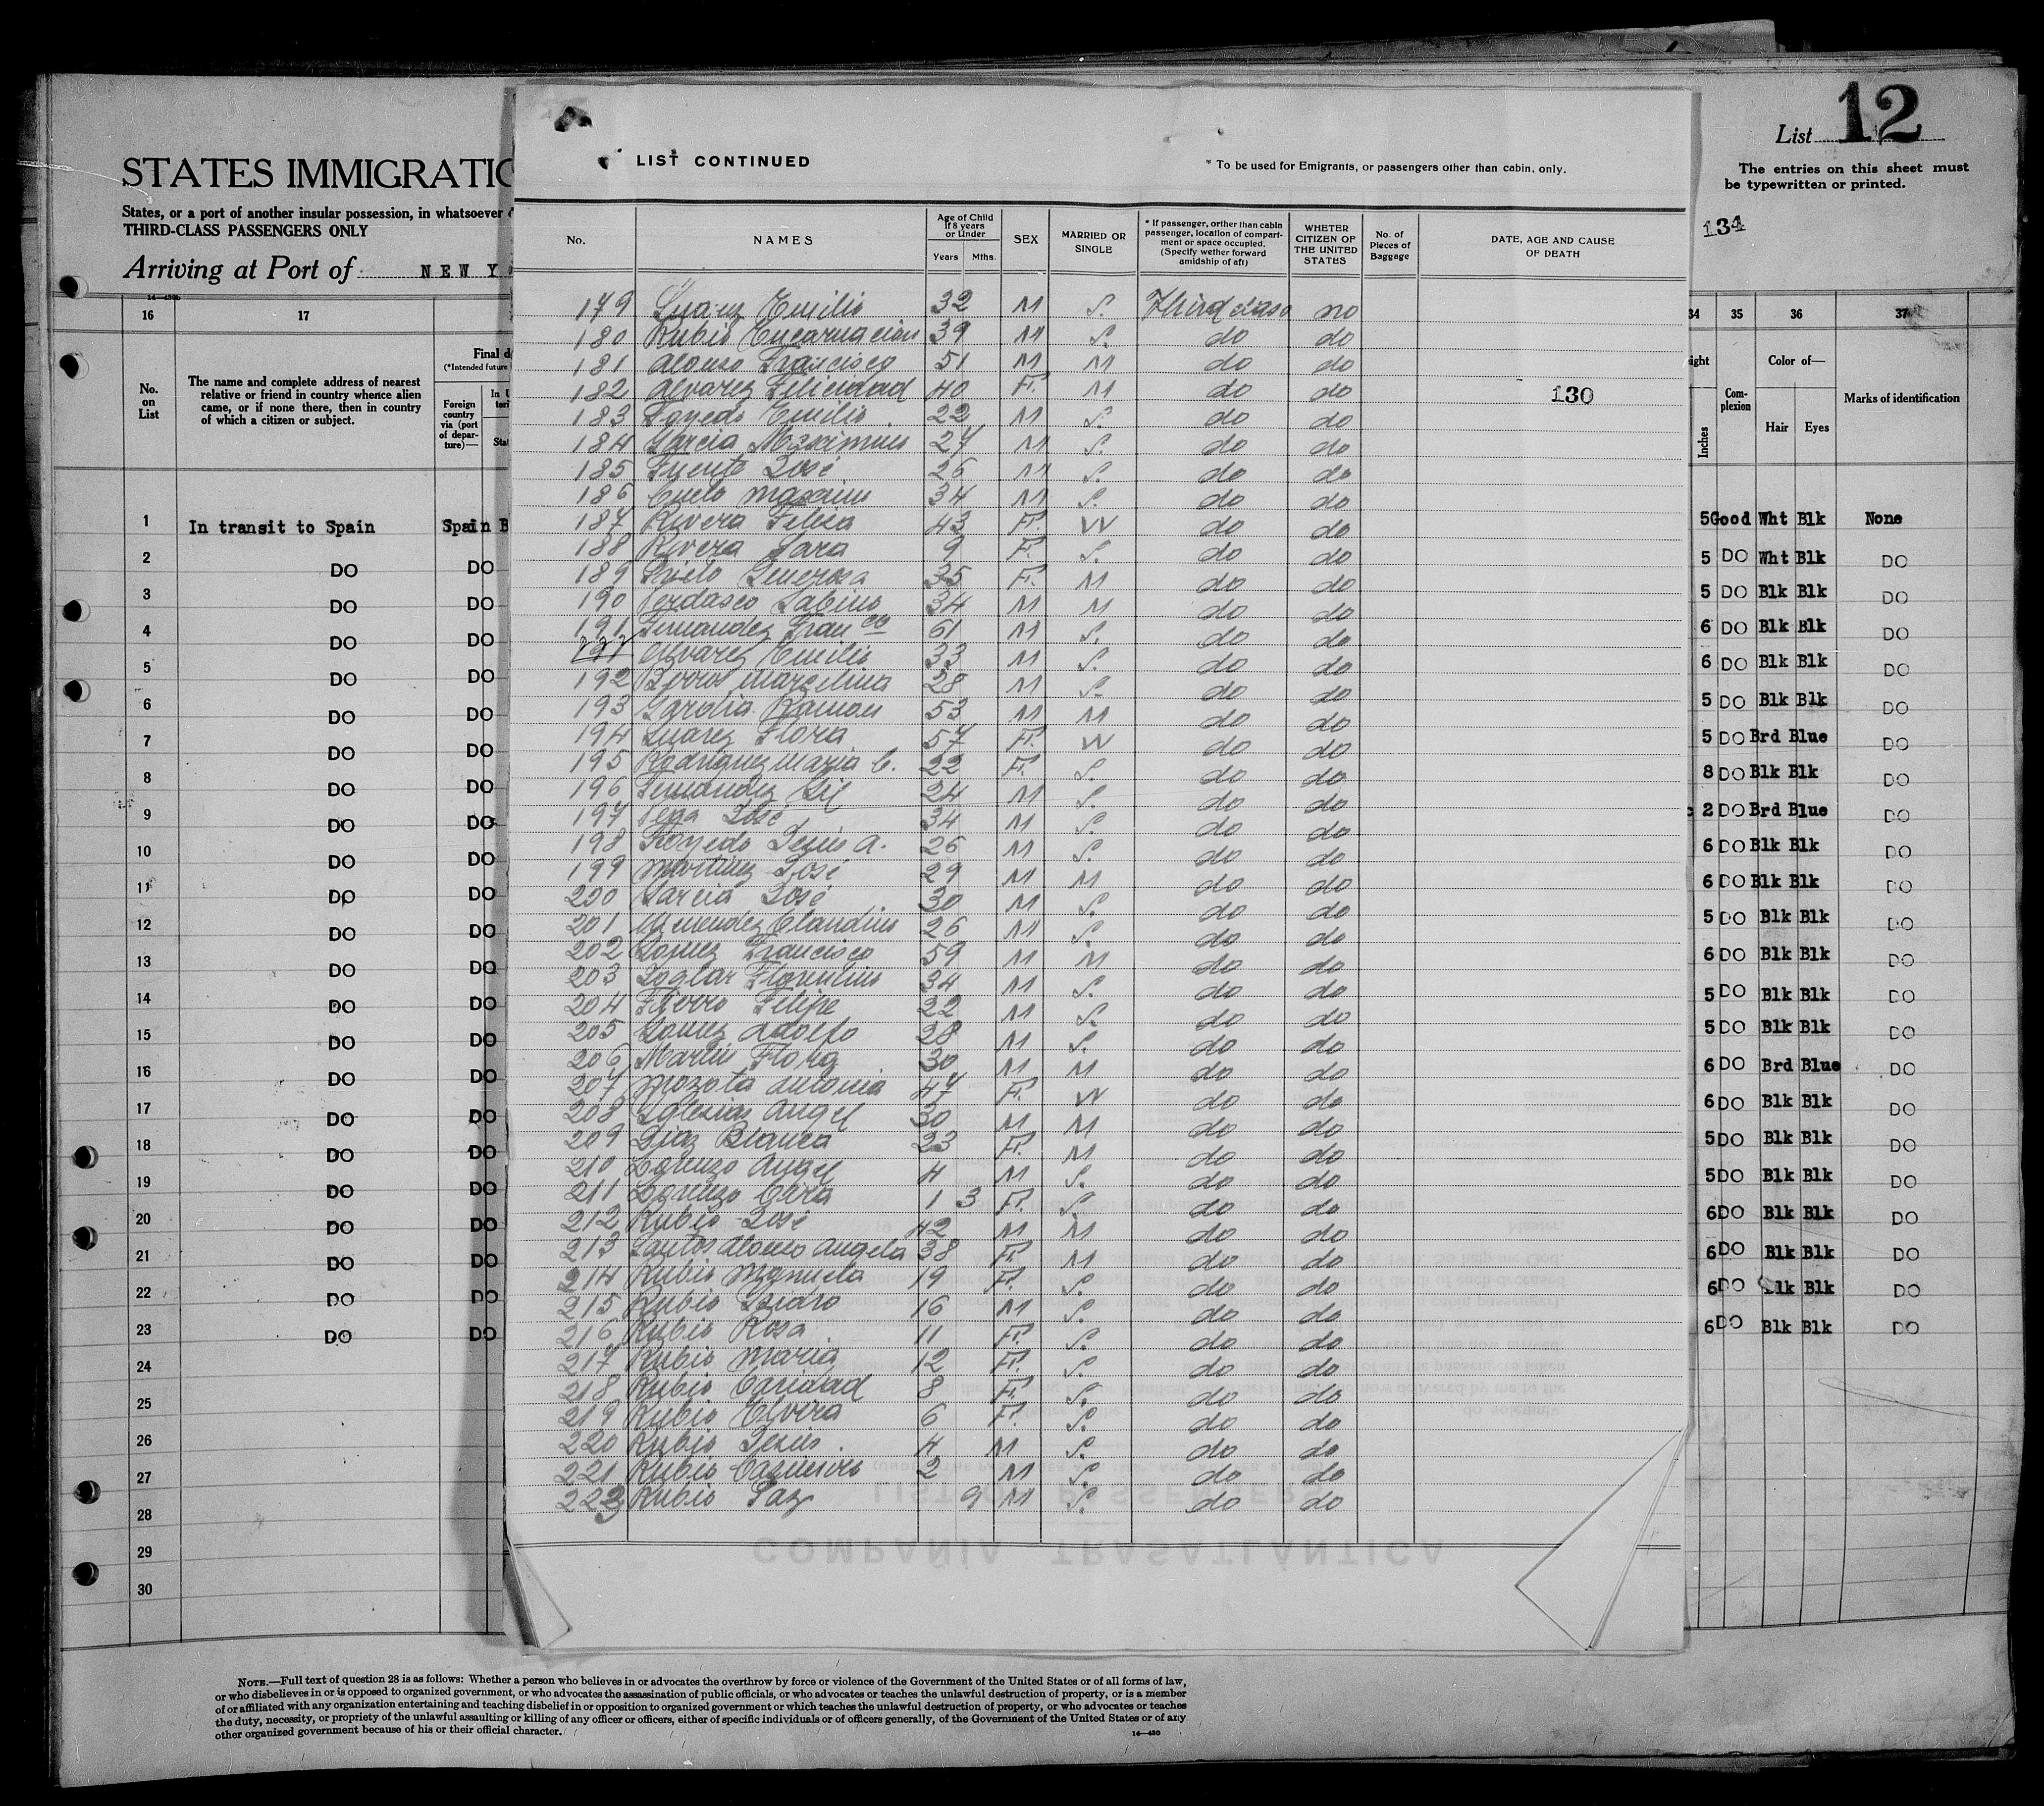 List 12
The entries on this sheet must
be typewritten or printed.
134
STATES IMMIGRATIO
States, or a port of another insular possession, in whatsoever
THIRD-CLASS PASSENGERS ONLY
Arriving at Port of NEW Y
14—430b
16 17
No. on List
The name and complete address of nearest
relative or friend in country whence alien
came, or if none there, then in country
of which a citizen or subject.
Final d
(*Intended future
Foreign country via (port of depar- ture)—
In U
teri
Stat
1 In transit to Spain Spain B
2 DO DO
3 DO DO
4 DO DO
5 DO DO
6 DO DO
7 DO DO
8 DO DO
9 DO DO
10 DO DO
11 DO DO
12 DO DO
13 DO DO
14 DO DO
15 DO DO
16 DO DO
17 DO DO
18 DO DO
19 DO DO
20 DO DO
21 DO DO
22 DO DO
23 DO DO
24
25
26
27
28
29
30
LIST CONTINUED
* To be used for Emigrants, or passengers other than cabin, only.
No.
NAMES
Age of Child
If 8 years
or Under
Years Mths.
SEX
MARRIED OR
SINGLE
* If passenger, orther than cabin
passenger, location of compart-
ment or space occupied.
(Specify wether forward
amidship of aft)
WHETER
CITIZEN OF
THE UNITED
STATES
No. of
Pieces of
Baggage
DATE, AGE AND CAUSE
OF DEATH
179 Suarez Emilio 32 M S. Third class no
180 Rubio Encarnacion 39 M S. do do
181 Alonso Francisco 51 M M do do
182 Alvarez Felicidad 40 F. M do do 130
183 Emilio 22 M S. do do
184 Garcia Maximino 27 M S. do do
185 Fuente José 26 M S. do do
186 Cueto Maximo 34 M S. do do
187 Rivera Felisa 43 F. W do do
188 Rivera Sara 9 F. S. do do
189 Prieto Generosa 35 F. M do do
190 Verdasco Sabino 34 M M do do
191 Fernandez Franco 61 M S. do do
191 Alvarez Emilio 33 M S. do do
192 Marcelina 28 M S. do do
193 Ramon 53 M M do do
194 Suarez Flora 57 F. W do do
195 Rodriguez Maria C. 22 F. S. do do
196 Fernandez Gil 24 M S. do do
197 Vega José 34 M S. do do
198 Jesus A. 26 M S. do do
199 Martinez José 29 M M do do
200 Garcia José 30 M S. do do
201 Menendez Claudino 26 M S. do do
202 Lopez Francisco 59 M M do do
203 Florentino 34 M S. do do
204 Fierro Felipe 22 M S. do do
205 Gomez Adolfo 28 M S. do do
206 Martin Flora 30 M M do do
207 Mozota Antonia 47 F. W do do
208 Iglesias Angel 30 M M do do
209 Diaz Blanca 23 F. M do do
210 Lorenzo Angel 4 M S. do do
211 Lorenzo 1 3 F. S. do do
212 Rubio José 42 M M do do
213 Santos Alonso Angela 38 F. M do do
214 Rubio Manuela 19 F. S. do do
215 Rubio Isidro 16 M S. do do
216 Rubio Rosa 11 F. S. do do
217 Rubio Maria 12 F. S. do do
218 Rubio Caridad 8 F. S. do do
219 Rubio Elvira 6 F. S. do do
220 Rubio Jesus. 4 M S. do do
221 Rubio Casimiro 2 M S. do do
222 Rubio Paz 9 M S. do do
COMPAÑIA TRASATLANTICA
34 35 36 37
ight
Inches
Com-
plexion
Color of—
Hair Eyes
Marks of identification
5 Good Wht Blk None
5 DO Wht Blk DO
5 DO Blk Blk DO
6 DO Blk Blk DO
6 DO Blk Blk DO
5 DO Blk Blk DO
5 DO Brd Blue DO
8 DO Blk Blk DO
2 DO Brd Blue DO
6 DO Blk Blk DO
6 DO Blk Blk DO
5 DO Blk Blk DO
6 DO Blk Blk DO
5 DO Blk Blk DO
5 DO Blk Blk DO
6 DO Brd Blue DO
6 DO Blk Blk DO
5 DO Blk Blk DO
5 DO Blk Blk DO
6 DO Blk Blk DO
6 DO Blk Blk DO
6 DO Blk Blk DO
6 DO Blk Blk DO
NOTE.—Full text of question 28 is as follows: Whether a person who believes in or advocates the overthrow by force or violence of the Government of the United States or of all forms of law,
or who disbelieves in or is opposed to organized government, or who advocates the assassination of public officials, or who advocates or teaches the unlawful destruction of property, or is a member
of or affiliated with any organization entertaining and teaching disbelief in or opposition to organized government or which teaches the unlawful destruction of property, or who advocates or teaches
the duty, necessity, or propriety of the unlawful assaulting or killing of any officer or officers, either of specific individuals or of officers generally, of the Government of the United States or of any
other organized government because of his or their official character.
14—430